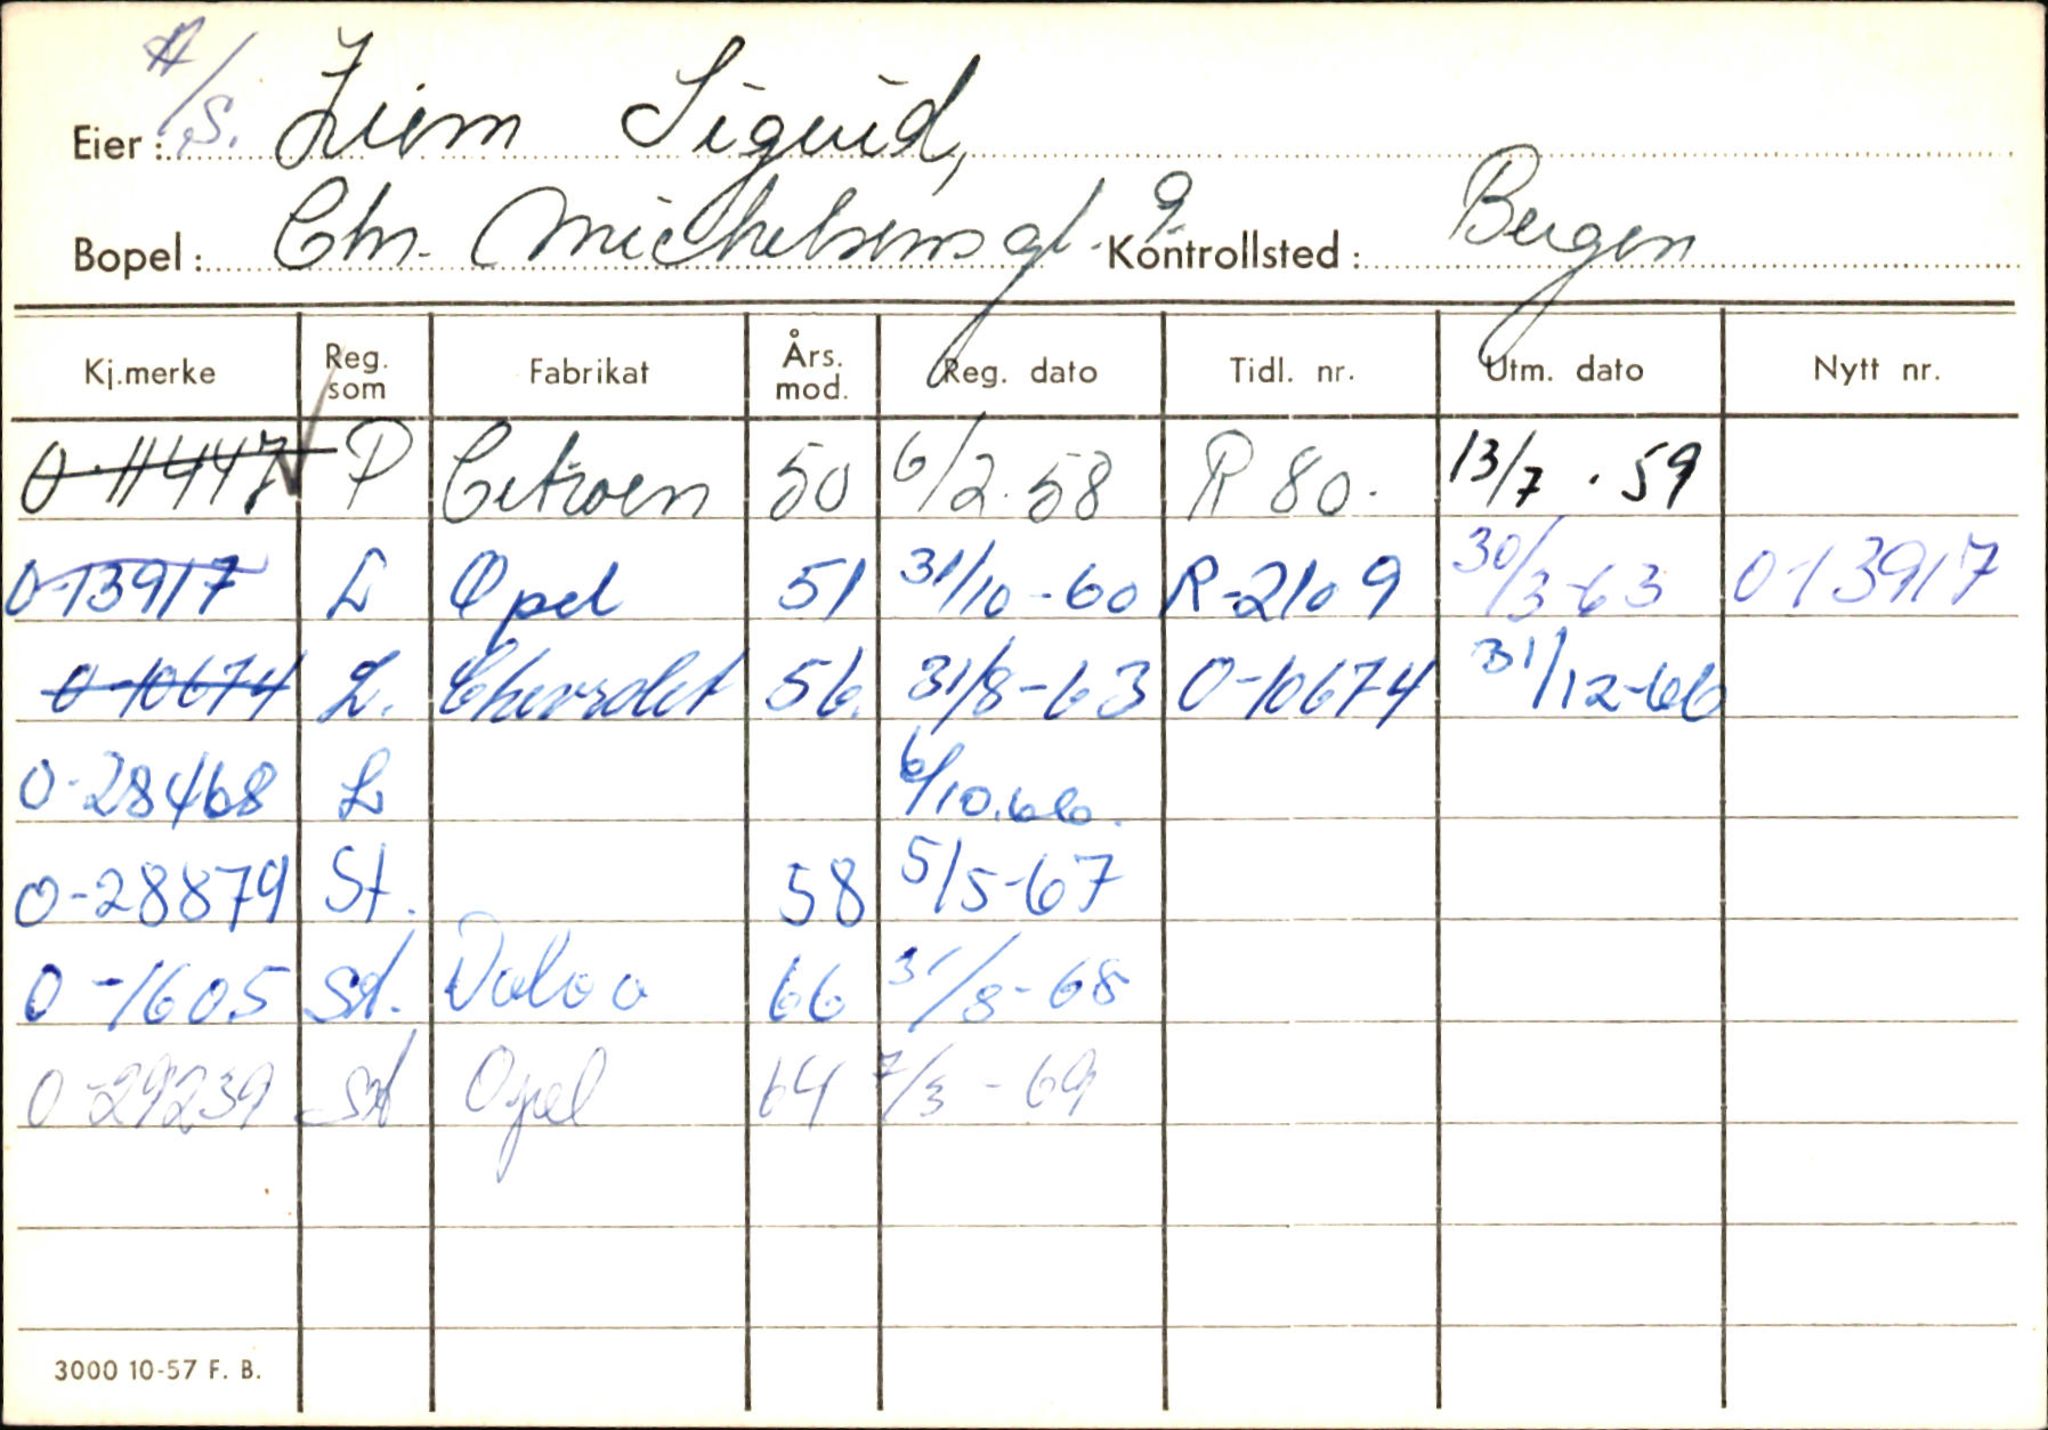 Eier: A/S. Ziem Sigurd,
Bopel: Chr. Michelsens gt. 9. Kontrollsted: Bergen
Kj.merke Reg. som Fabrikat Års. mod. Reg. dato Tidl. nr. Utm. dato Nytt nr.
O-11447 P Citroen 50 6/2.58 R 80. 13/7.59
O-13917 L Opel 51 31/10-60 R-2109 30/3-63 O-13917
O-10674 L. Chevrolet 56. 31/8-63 O-10674 31/12-66
O-28468 L 6/10.66.
O-28879 St. 58 5/5-67
O-1605 St. Volvo 66 31/8-68
O-29239 St Opel 64 7/3-69
3000 10-57 F. B.